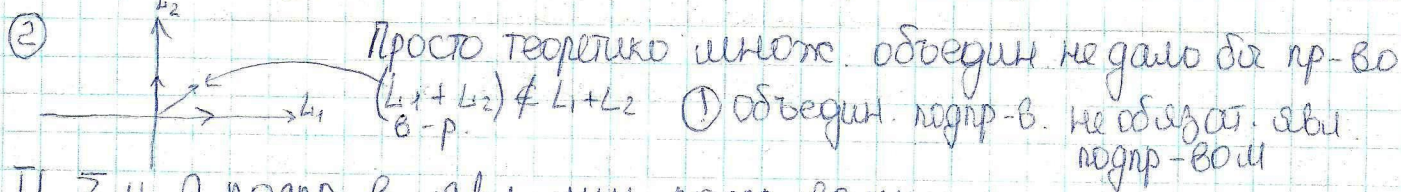 ② L₂ Просто теоретико множ. объедин. не дало бы пр-во
L₁ (L₁ + L₂) ∉ L₁ + L₂ ① объедин. подпр-в. не обязат. явл.
в-р. подпр-вом